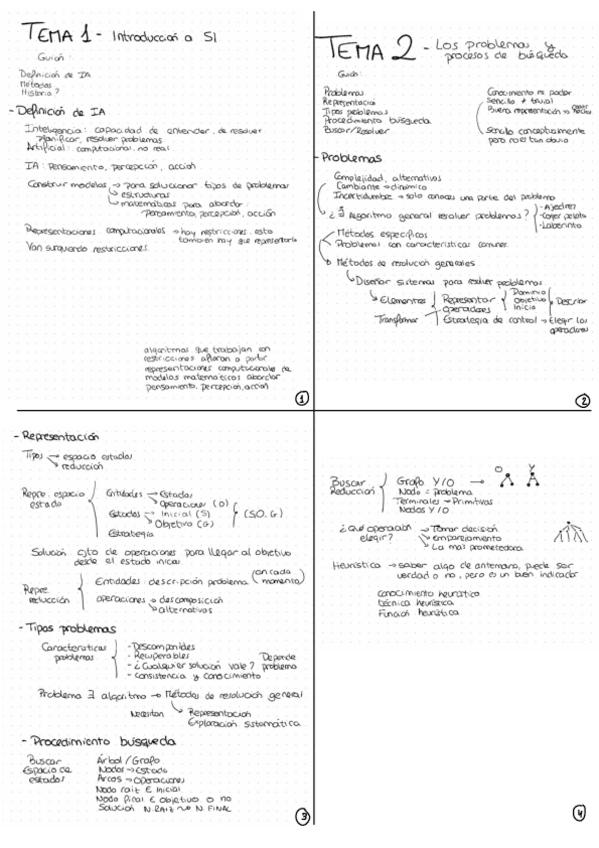 TEMA 1 - Introducción a SI
Guión:
Definición de IA
Métodos
Historia?
- Definición de IA
Inteligencia: capacidad de entender, de resolver
planificar, resolver problemas
Artificial: computacional, no real
IA: Pensamiento, percepción, acción
Construir modelos → para solucionar tipos de problemas
→ estructuras
→ matemáticas para abordar
pensamiento, percepción, acción
Representaciones computacionales → hay restricciones. esto
también hay que representarlo
Van surgiendo restricciones.
algoritmos que trabajan con
restricciones afloran a partir
representaciones computacionales de
modelos matemáticos abordar
pensamiento, percepción, acción
1
TEMA 2 - Los problemas y
procesos de búsqueda
Guión:
Problemas
Representación
Tipos problemas
Procedimiento búsqueda
Buscar/Resolver
Conocimiento es poder
Sencillo ≠ trivial
Buena representación →
Sencillo conceptualmente
pero no es tan obvio
- Problemas
Complejidad, alternativas
Cambiante → dinámico
Incertidumbre → solo conoces una parte del problema
¿∃ Algoritmo general resolver problemas?
- Ajedrez
- Coger pelota
- Laberinto
Métodos específicos
Problemas con características comunes
Métodos de resolución generales
Diseñar sistemas para resolver problemas
Elementos
Representar
Dominio
Objetivo
Inicio
Describir
Transformar
operadores
Estrategia de control → Elegir los
operadores
2
- Representación
Tipos → espacio estados
→ reducción
Repre. espacio
estado
Entidades → Estados
→ Operaciones (O)
Estados → Inicial (S)
→ Objetivo (G)
(S.O.G)
Estrategia
Solución cjto de operaciones para llegar al objetivo
desde el estado inicial
Repre.
reducción
Entidades: descripción problema (en cada
momento)
operaciones → descomposición
→ alternativas
- Tipos problemas
Características
problemas
- Descomponibles
- Recuperables
- ¿Cualquier solución vale? Depende
problema
- Consistencia y conocimiento
Problema ∃ algoritmo → Métodos de resolución general
Necesitan → Representación
Exploración sistemática
- Procedimiento búsqueda
Buscar
Espacio de
estados
Árbol / Grafo
Nodos → Estado
Arcos → Operaciones
Nodo raíz ∈ inicial
Nodo final ∈ objetivo o no
Solución N. RAIZ ~> N. FINAL
3
Buscar
Reducción
Grafo Y/O → O Y
Nodo = problema
Terminales → Primitivas
Nodos Y/O
¿Qué operación
elegir?
→ Tomar decisión
→ emparejamiento
→ La más prometedora
Heurística → saber algo de antemano, puede ser
verdad o no, pero es un buen indicador
conocimiento heurístico
técnica heurística
Función heurística
4